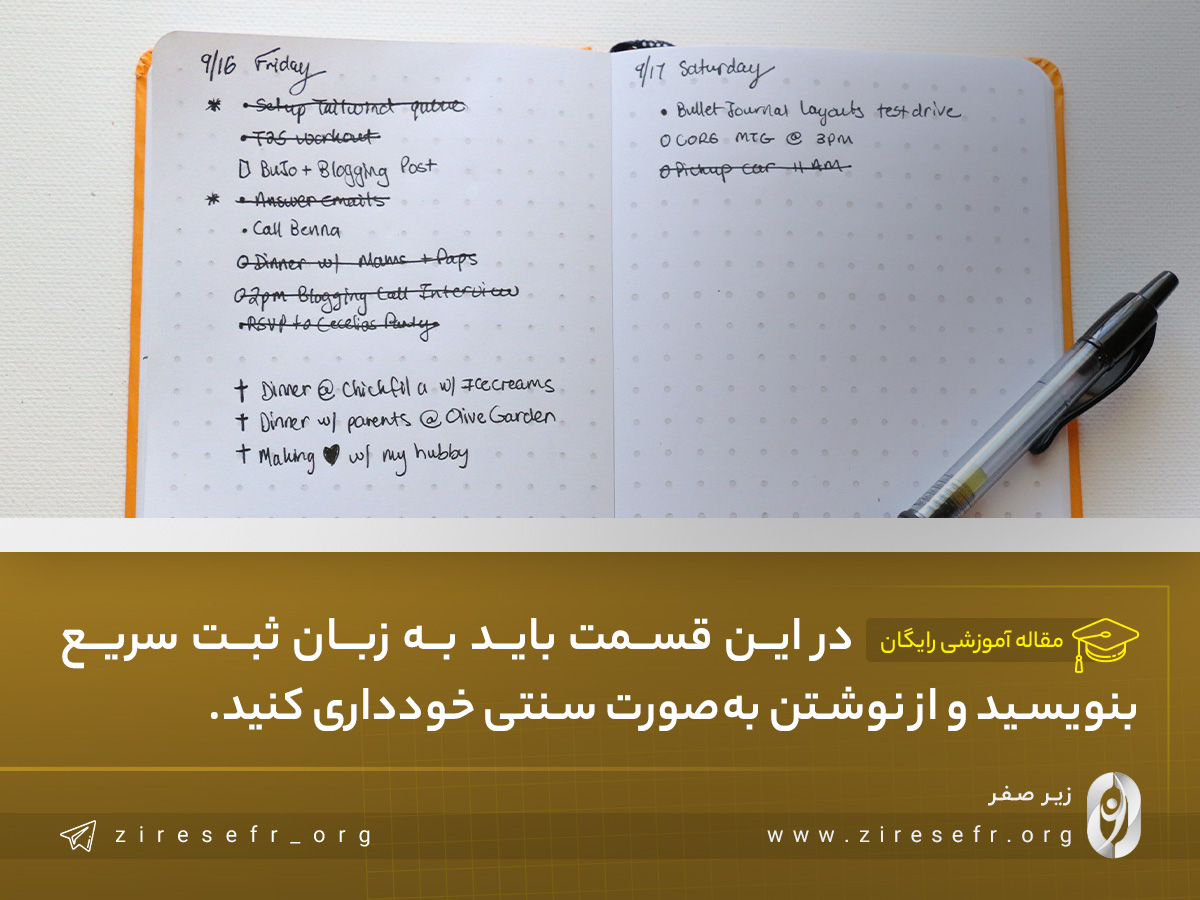 9/16 Friday
* • Setup Tailwind queue
• T25 workout
BuJo + Blogging Post
* • Answer emails
• Call Benna
O Dinner w/ Mams + Paps
O 2pm Blogging Call Interview
• RSVP to Cecelias Party
† Dinner @ Chickfil a w/ Icecreams
† Dinner w/ parents @ Olive Garden
† Making ♥ w/ my hubby
9/17 Saturday
• Bullet Journal layouts testdrive
O CORE MTG @ 3PM
O Pickup car 11 AM
مقاله آموزشی رایگان
در این قسمت باید به زبان ثبت سریع
بنویسید و از نوشتن به‌صورت سنتی خودداری کنید.
زیر صفر
www.ziresefr.org
ziresefr_org